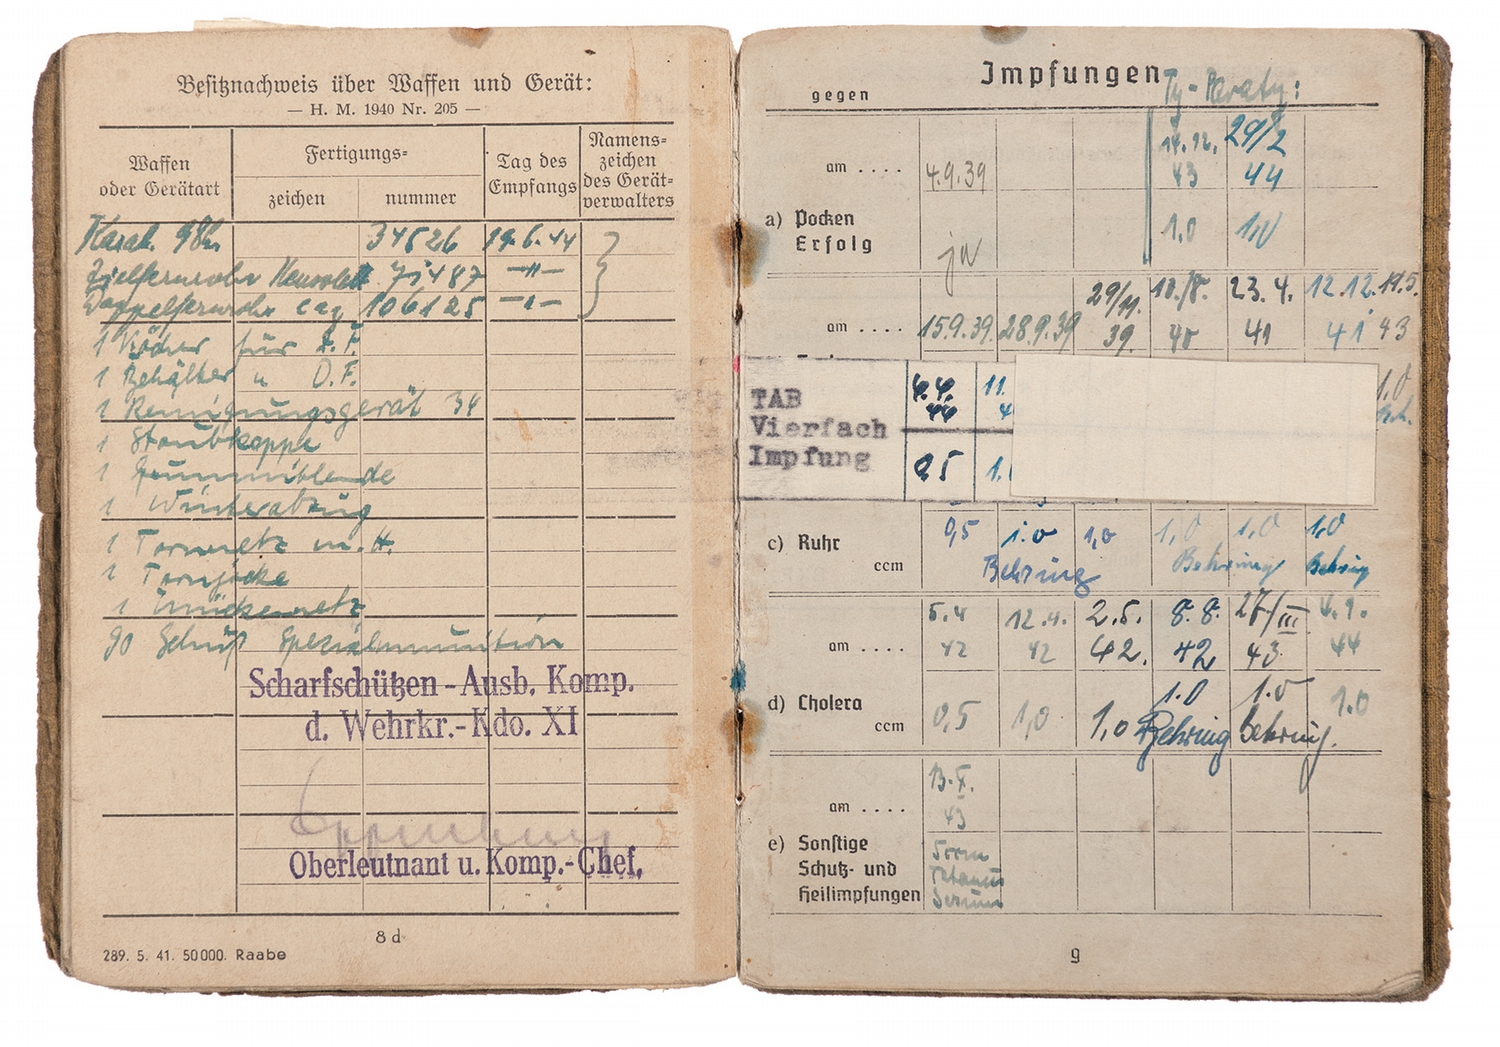 Besitznachweis über Waffen und Gerät:
— H. M. 1940 Nr. 205 —
Waffen oder Gerätart
Fertigungs=
zeichen
nummer
Tag des Empfangs
Namens=zeichen des Gerät=verwalters
Karab. 98k 19.6.44
Zielfernrohr 
Doppelfernrohr cag 106125
1 Köcher für Z.F.
1 Behälter u D.F.
1 Reinigungsgerät 34
1 Staubkappe
1 Gummiblende
1 Winterabzug
1 Tarnnetz m. H.
1 Tarnjacke
1 Mückennetz
90 Schuß Spezialmunition
Scharfschützen-Ausb. Komp.
d. Wehrkr.-Kdo. XI
Oberleutnant u. Komp.-Chef.
8 d
289. 5. 41. 50000. Raabe
Impfungen
gegen Ty-Paraty:
am .... 4.9.39 14.12. 43 29/2 44
a) Pocken
Erfolg ja 1,0 1,0
am .... 15.9.39. 28.9.39 29/11. 39. 10./8. 40 23.4. 41 12.12. 41 19.5. 43
TAB 4.4. 44 11.
Vierfach
Impfung 0,5 1,
1,0
c) Ruhr
ccm 0,5 1.0 1,0 1,0 1,0 1,0
Behring Behring Behring
am .... 5.4 42 12.4. 42 2.5. 42. 8.8. 42 27/III 43 4.9. 44
d) Cholera
ccm 0,5 1,0 1,0 1.0 Behring 1.0 Behring. 1.0
am .... 13.X. 43
e) Sonstige
Schutz- und Tetanus
Heilimpfungen Serum
9